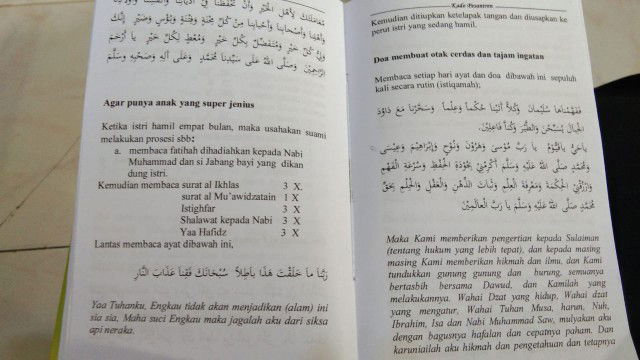 مُعَامَلَتَكَ لِأَهْلِ الْخَيْرِ وَأَنْ تَحْفَظَنَا فِي أَدْيَانِنَا
وَأَهْلِنَا وَأَصْحَابِنَا وَأَحْبَابِنَا مِنْ كُلِّ مِحْنَةٍ وَفِتْنَةٍ وَبُؤْسٍ وَضَيْرٍ إِنَّكَ
وَلِيُّ كُلِّ خَيْرٍ وَمُتَفَضِّلٌ بِكُلِّ خَيْرٍ وَمُعْطٍ لِكُلِّ خَيْرٍ يَا أَرْحَمَ
الرَّاحِمِيْنَ وَصَلَّى اللهُ عَلَى سَيِّدِنَا مُحَمَّدٍ وَعَلَى آلِهِ وَصَحْبِهِ وَسَلَّمَ
Agar punya anak yang super jenius
Ketika istri hamil empat bulan, maka usahakan suami
melakukan prosesi sbb:
a. membaca fatihah dihadiahkan kepada Nabi
Muhammad dan si Jabang bayi yang dikan
dung istri.
Kemudian membaca surat al Ikhlas 3 X
surat al Mu'awidzatain 1 X
Istighfar 3 X
Shalawat kepada Nabi 3 X
Yaa Hafidz 3 X
Lantas membaca ayat dibawah ini,
رَبَّنَا مَا خَلَقْتَ هَذَا بَاطِلاً سُبْحَانَكَ فَقِنَا عَذَابَ النَّارِ
Yaa Tuhanku, Engkau tidak akan menjadikan (alam) ini
sia sia, Maha suci Engkau maka jagalah aku dari siksa
api neraka.
Kado Pesantren
Kemudian ditiupkan ketelapak tangan dan diusapkan ke
perut istri yang sedang hamil.
Doa membuat otak cerdas dan tajam ingatan
Membaca setiap hari ayat dan doa dibawah ini sepuluh
kali secara rutin (istiqamah);
فَفَهَّمْنَاهَا سُلَيْمَانَ وَكُلاًّ آتَيْنَا حُكْمًا وَعِلْمًا وَسَخَّرْنَا مَعَ دَاوُدَ
الْجِبَالَ يُسَبِّحْنَ وَالطَّيْرَ وَكُنَّا فَاعِلِيْنَ.
يَاحَيُّ يَاقَيُّوْمُ يَا رَبَّ مُوْسَى وَهَرُوْنَ وَنُوْحٍ وَإِبْرَاهِيْمَ وَعِيْسَى
وَمُحَمَّدٍ صَلَّى اللهُ عَلَيْهِ وَسَلَّمَ أَكْرِمْنِيْ بِجُوْدَةِ الْحِفْظِ وَسُرْعَةِ الْفَهْمِ
وَارْزُقْنِي الْحِكْمَةَ وَمَعْرِفَةَ الْعِلْمِ وَثَبَاتَ الذِّهْنِ وَالْعَقْلِ وَالْحِلْمِ بِحَقِّ
مُحَمَّدٍ صَلَّى اللهُ عَلَيْهِ وَسَلَّمَ يَا رَبَّ الْعَالَمِيْنَ
Maka Kami memberikan pengertian kepada Sulaiman
(tentang hukum yang lebih tepat), dan kepada masing
masing Kami memberikan hikmah dan ilmu, dan Kami
tundukkan gunung gunung dan burung, semuanya
bertasbih bersama Dawud, dan Kamilah yang
melakukannya. Wahai Dzat yang hidup, Wahai dzat
yang mengatur, Wahai Tuhan Musa, harun, Nuh,
Ibrahim, Isa dan Nabi Muhammad Saw, mulyakan aku
dengan bagusnya hafalan dan cepatnya paham. Dan
karuniailah aku hikmah dan pengetahuan dan tetapnya